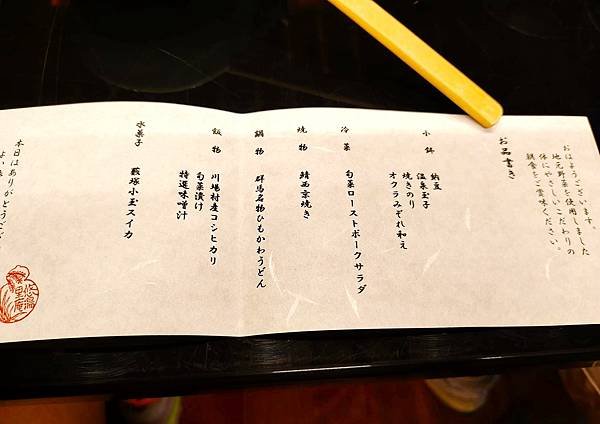 おはようございます。
地元野菜を使用しました
体にやさしいこだわりの
朝食をご賞味ください。
お品書き
小鉢
納豆
温泉玉子
焼きのり
オクラみぞれ和え
冷菜
旬菜ローストポークサラダ
焼物
鯖西京焼き
鍋物
群馬名物ひもかわうどん
飯物
川場村産コシヒカリ
旬菜漬け
特選味噌汁
水菓子
藪塚小玉スイカ
本日はありがとうござ